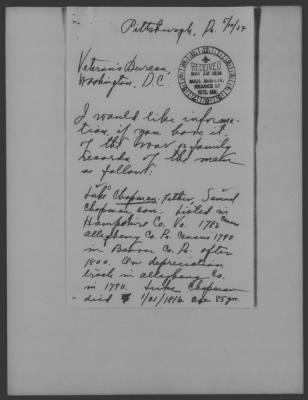 Pittsburgh, Pa. 5/9/34
RECEIVED
MAY 10 1934
Veterans Bureau
Washington, D.C.
I would like informa-
tion if you have it
of the war or family
records of the men
as follows:
Luke Chapman-Father, Samuel
Chapman son. Listed in
Hampshire Co. Va. 1782 Census
Allegheny Co. Pa. Census 1790
in Beaver Co. Pa. after
1800. On depreciation
tract in Allegheny Co.
in 1790. Luke Chapman
died 1/21/1816. age 85 yr.